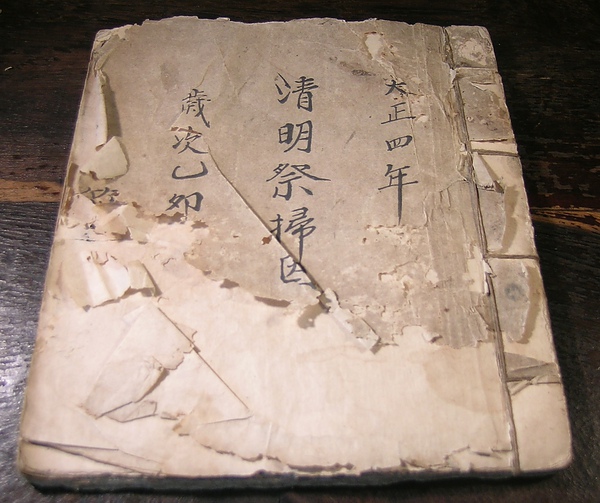 大正四年
清明祭掃
歲次乙卯